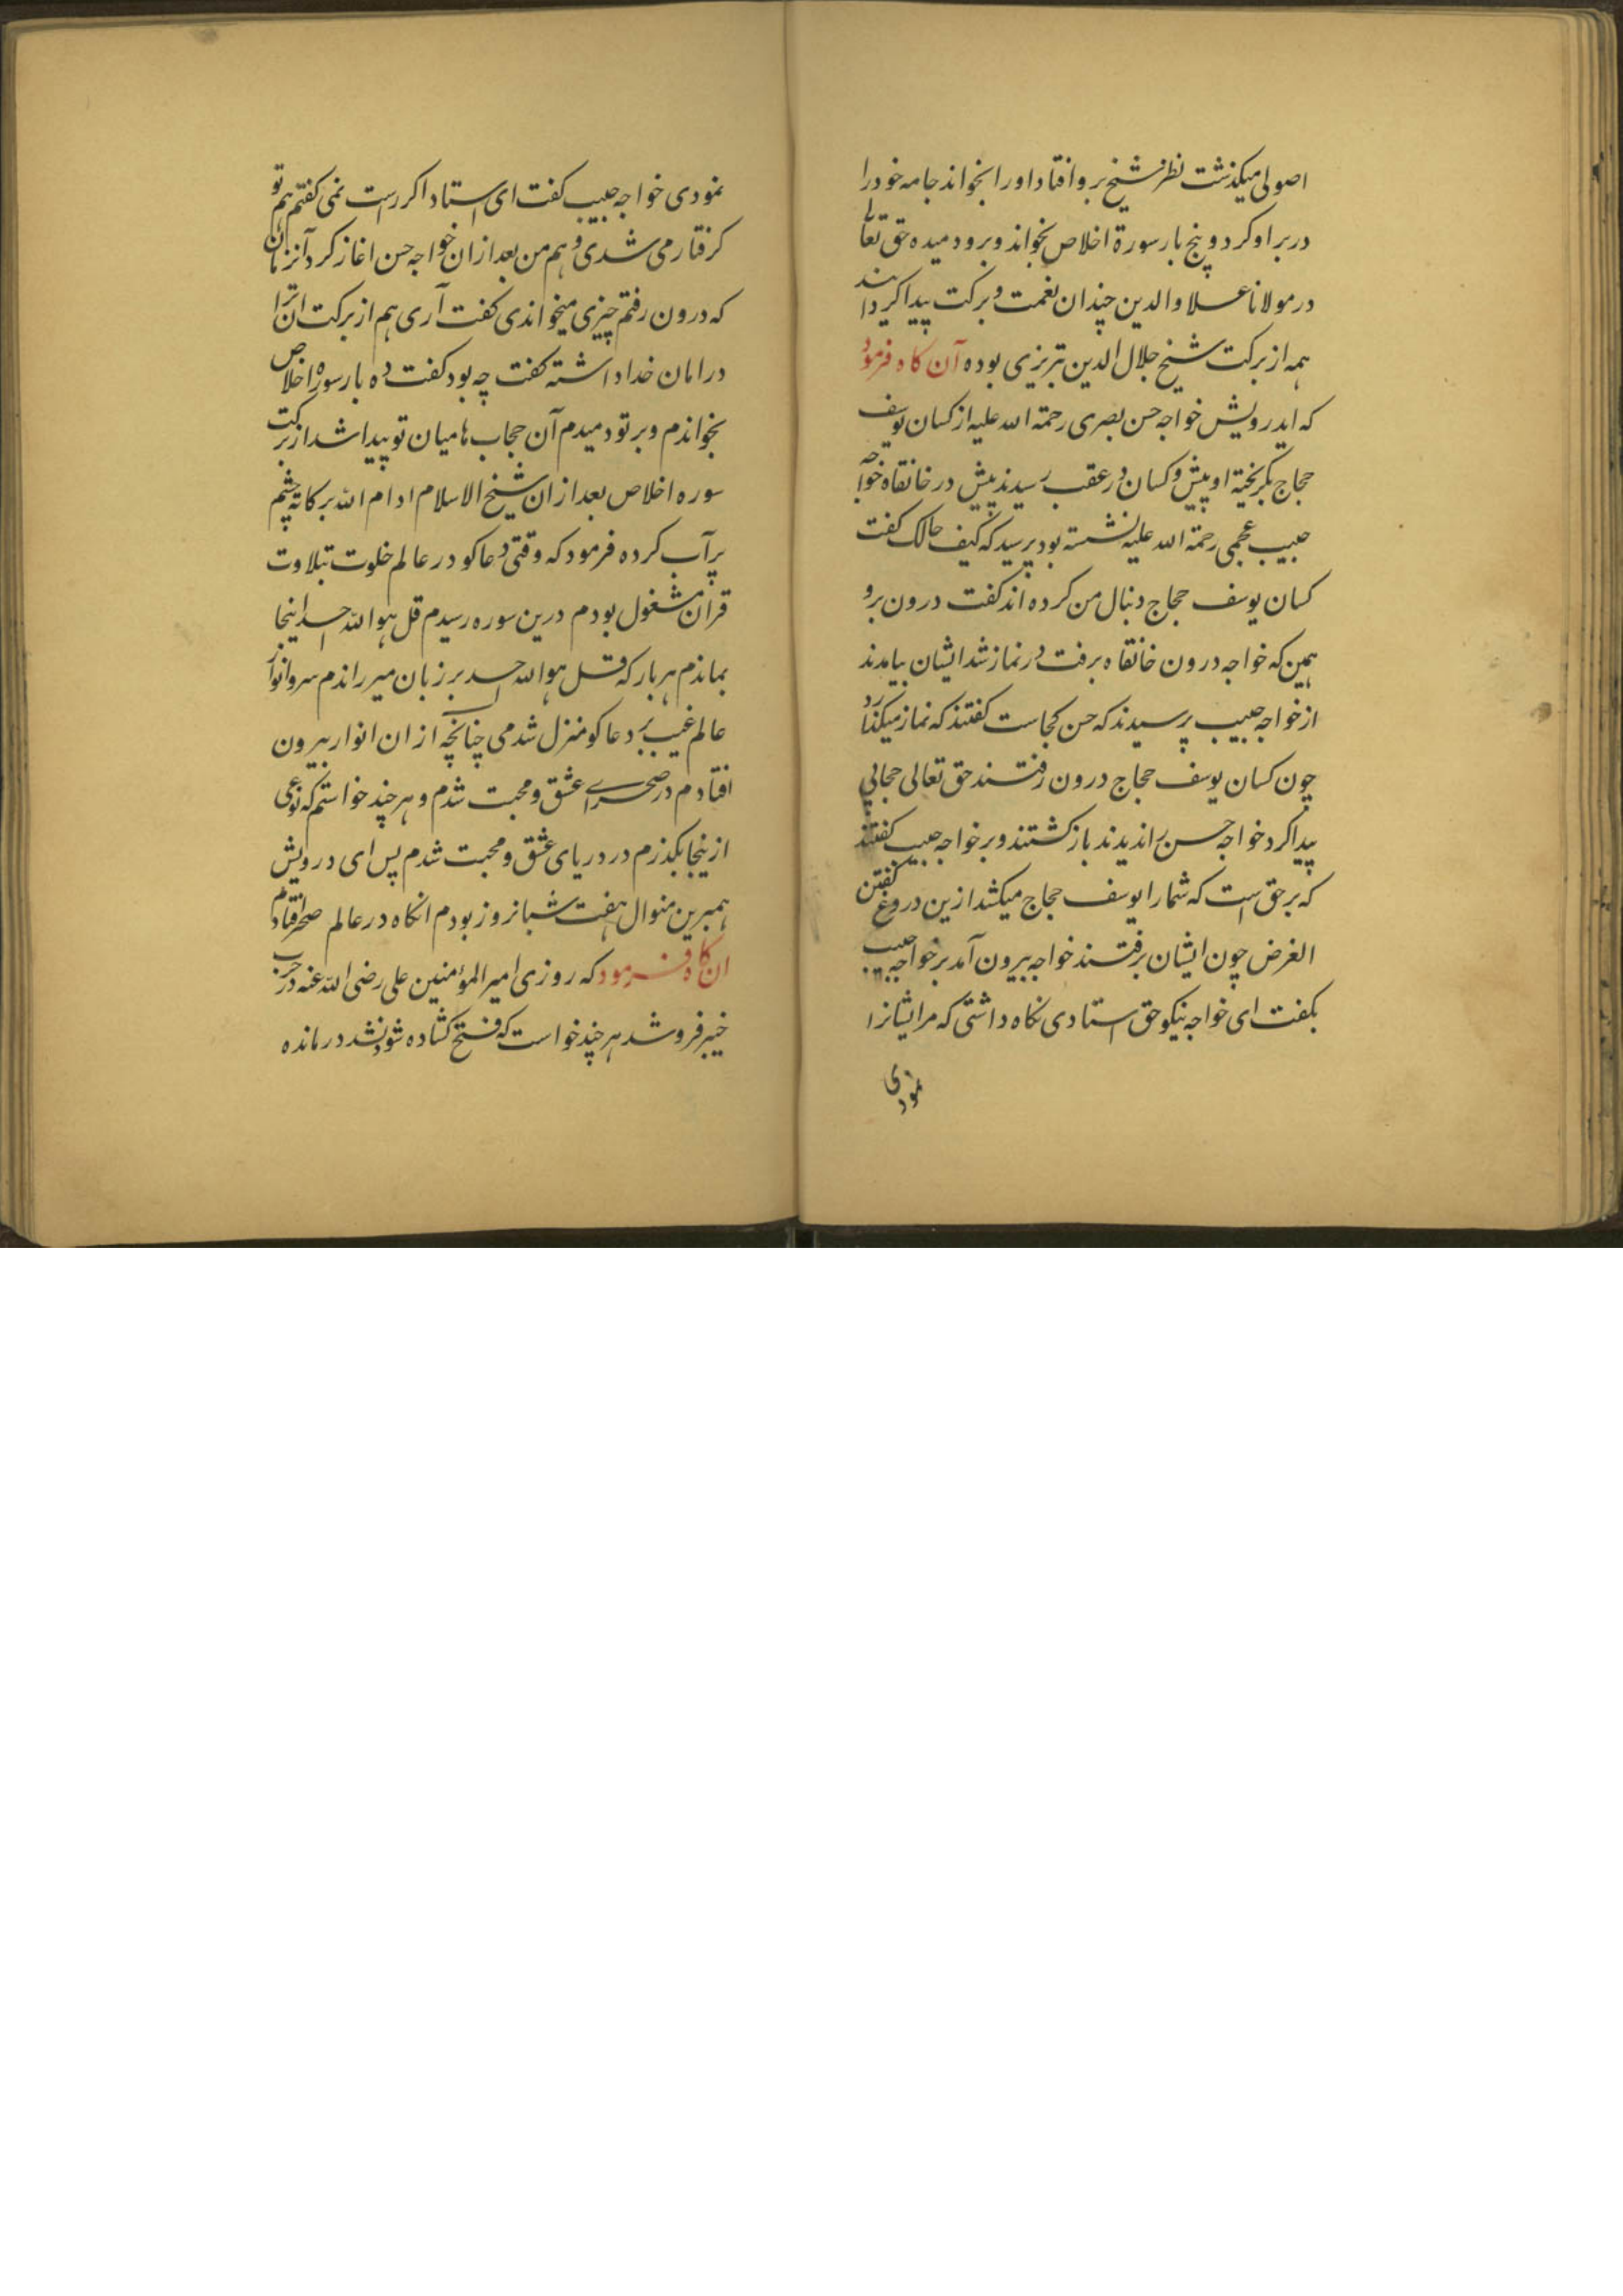 اصولی میکذشت نظر شیخ برو افتاد اورا بخواند جامه خودرا
در بر او کرد و پنج بار سورة اخلاص بخواند و برو دمیده حق تعالی
در مولانا علاو الدین چندان نعمت و برکت پیدا کردانید
همه از برکت شیخ جلال الدین تبریزی بوده آن کاه فرمود
که ایدرویش خواجه حسن بصری رحمة الله علیه از کسان یوسف
حجاج بکریخته او پیش و کسان در عقب رسیدند پیش در خانقاه خواجه
حبیب عجمی رحمة الله علیه نشسته بود پرسید که کیف حالک کفت
کسان یوسف حجاج دنبال من کرده اند کفت درون برو
همین که خواجه درون خانقاه برفت در نماز شد ایشان بیامدند
از خواجه حبیب پرسیدند که حسن کجاست کفتند که نماز میکذارد
چون کسان یوسف حجاج درون رفتند حق تعالی حجابی
پیدا کرد خواجه حسن را ندیدند باز کشتند و بر خواجه حبیب کفتند
که بر حق است که شمارا یوسف حجاج میکشد ازین دروغ کفتن
الغرض چون ایشان برفتند خواجه بیرون آمد بر خواجه حبیب
بکفت ای خواجه نیکو حق استادی نکاه داشتی که مرا ایشانرا
نمودی
نمودی خواجه حبیب کفت ای استاد اکر راست نمی کفتم هم تو
کرفتار می شدی و هم من بعد ازان خواجه حسن اغاز کرد آنزمان
که درون رفتم چیزی میخواندی کفت آری هم از برکت ان ترا
در امان خدا داشته کفت چه بود کفت ده بار سوره اخلاص
بخواندم و بر تو دمیدم آن حجاب ها میان تو پیدا شد از برکت
سوره اخلاص بعد ازان شیخ الاسلام ادام الله برکاته چشم
پرآب کرده فرمود که وقتی دعاکو در عالم خلوت بتلاوت
قران مشغول بودم درین سوره رسیدم قل هو الله احد اینجا
بماندم هر بار که قل هو الله احد بر زبان میراندم سر و انوار
عالم غیب بر دعاکو منزل شدمی چنانچه از ان انوار بیرون
افتادم در صحرای عشق و محبت شدم و هر چند خواستم که نوعی
ازینجا بکذرم در دریای عشق و محبت شدم پس ای درویش
همبرین منوال هفت شبانروز بودم انکاه در عالم صحو افتادم
ان کاه فرمود که روزی امیر المؤمنین علی رضی الله عنه در حرب
خیبر فرو شد هر چند خواست که فتح کشاده شود نشد درمانده